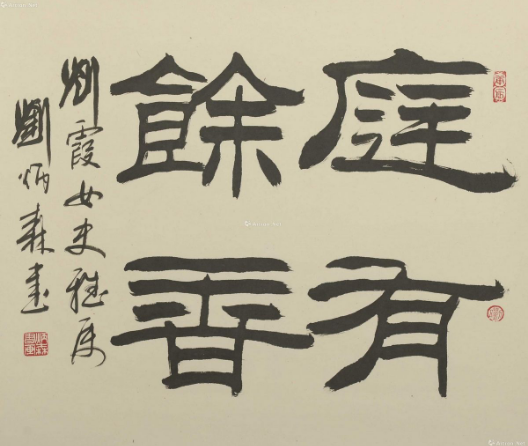 庭有
餘香
霞女史雅属
劉炳森書